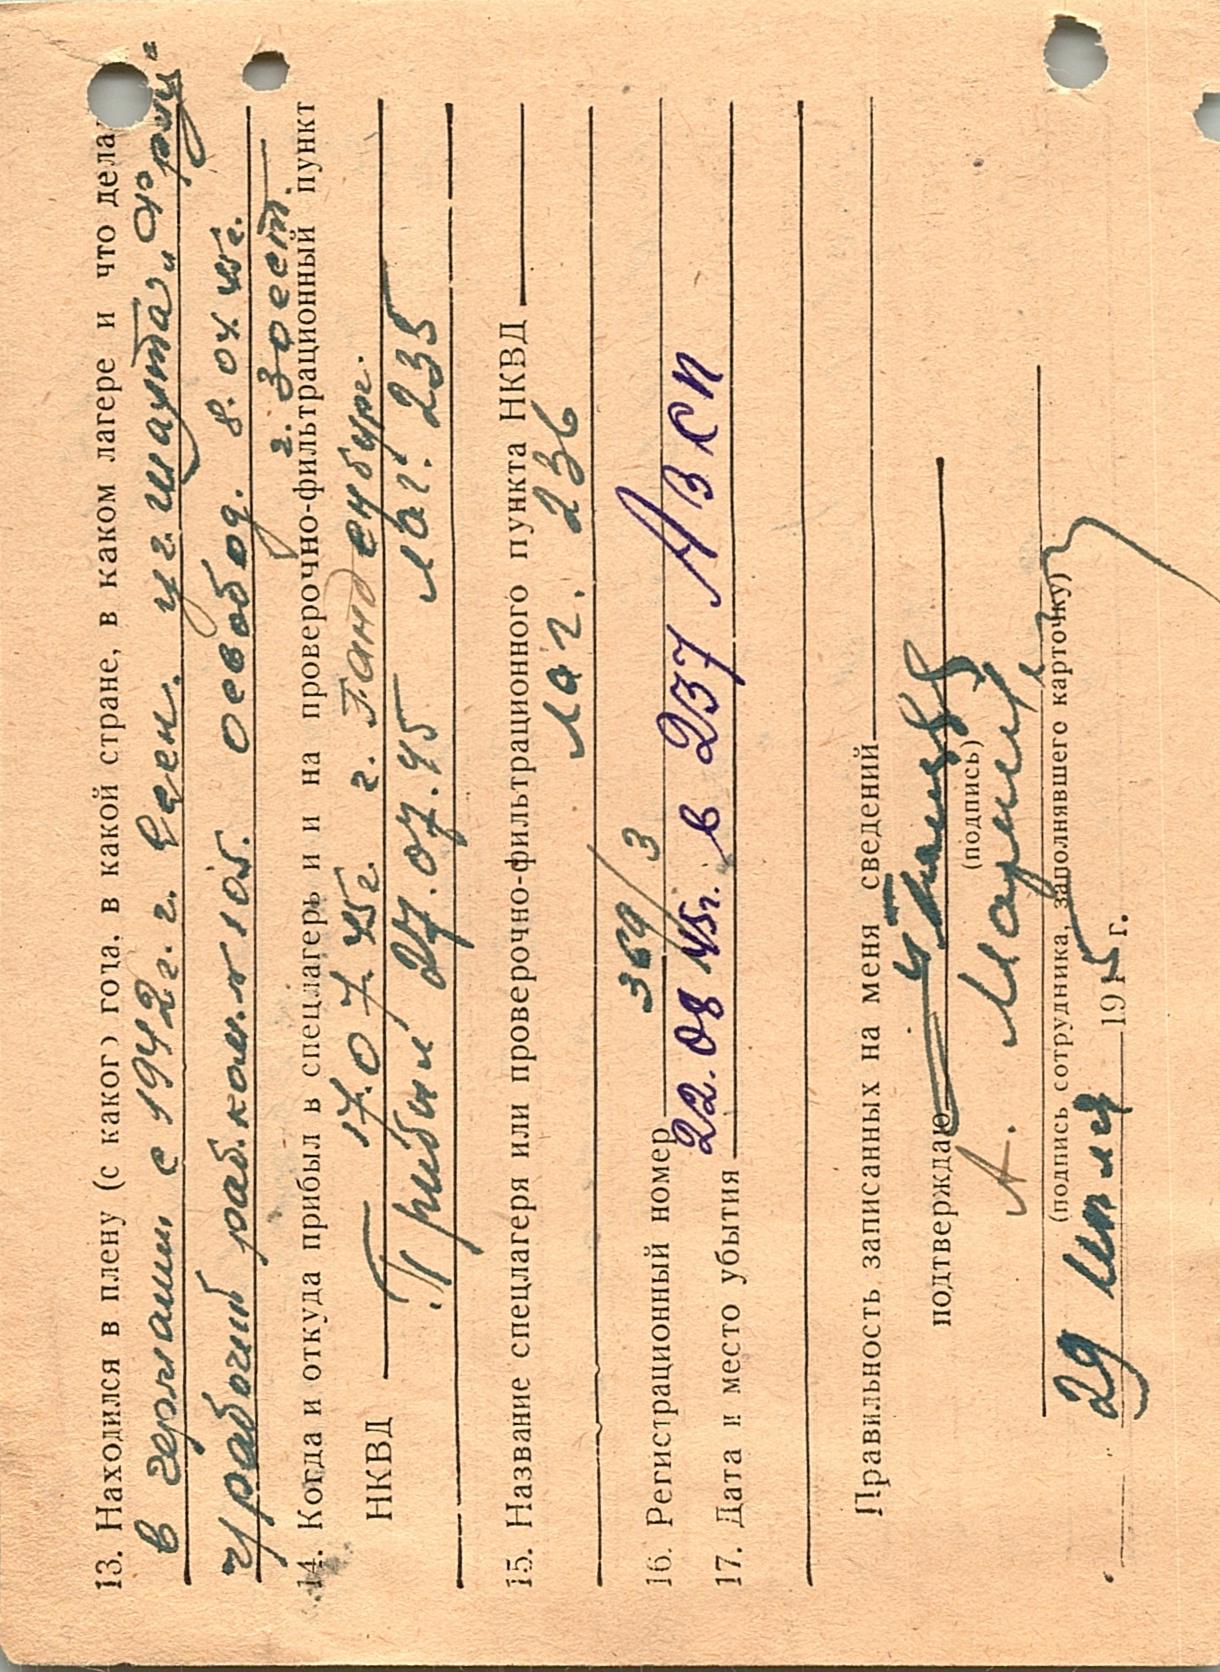 13. Находился в плену (с какого) года, в какой стране, в каком лагере и что дела
в германии с 1942 г. г. Есен. уг. шахта „Фриц"
рабочий раб. ком. № 105. освобод. 8.04.45г.
г. Зоест.
14. Когда и откуда прибыл в спецлагерь и на проверочно-фильтрационный пункт
НКВД 17.07.45г. г. Ганденбург.
Прибыл 27.07.45 лаг. 235
15. Название спецлагеря или проверочно-фильтрационного пункта НКВД
лаг. 236
16. Регистрационный номер 369/3
17. Дата и место убытия 22.08.45г. в 237 АЗСП
Правильность записанных на меня сведений
подтверждаю
(подпись)
А.
(подпись сотрудника, заполнявшего карточку)
29 июля 1945 г.